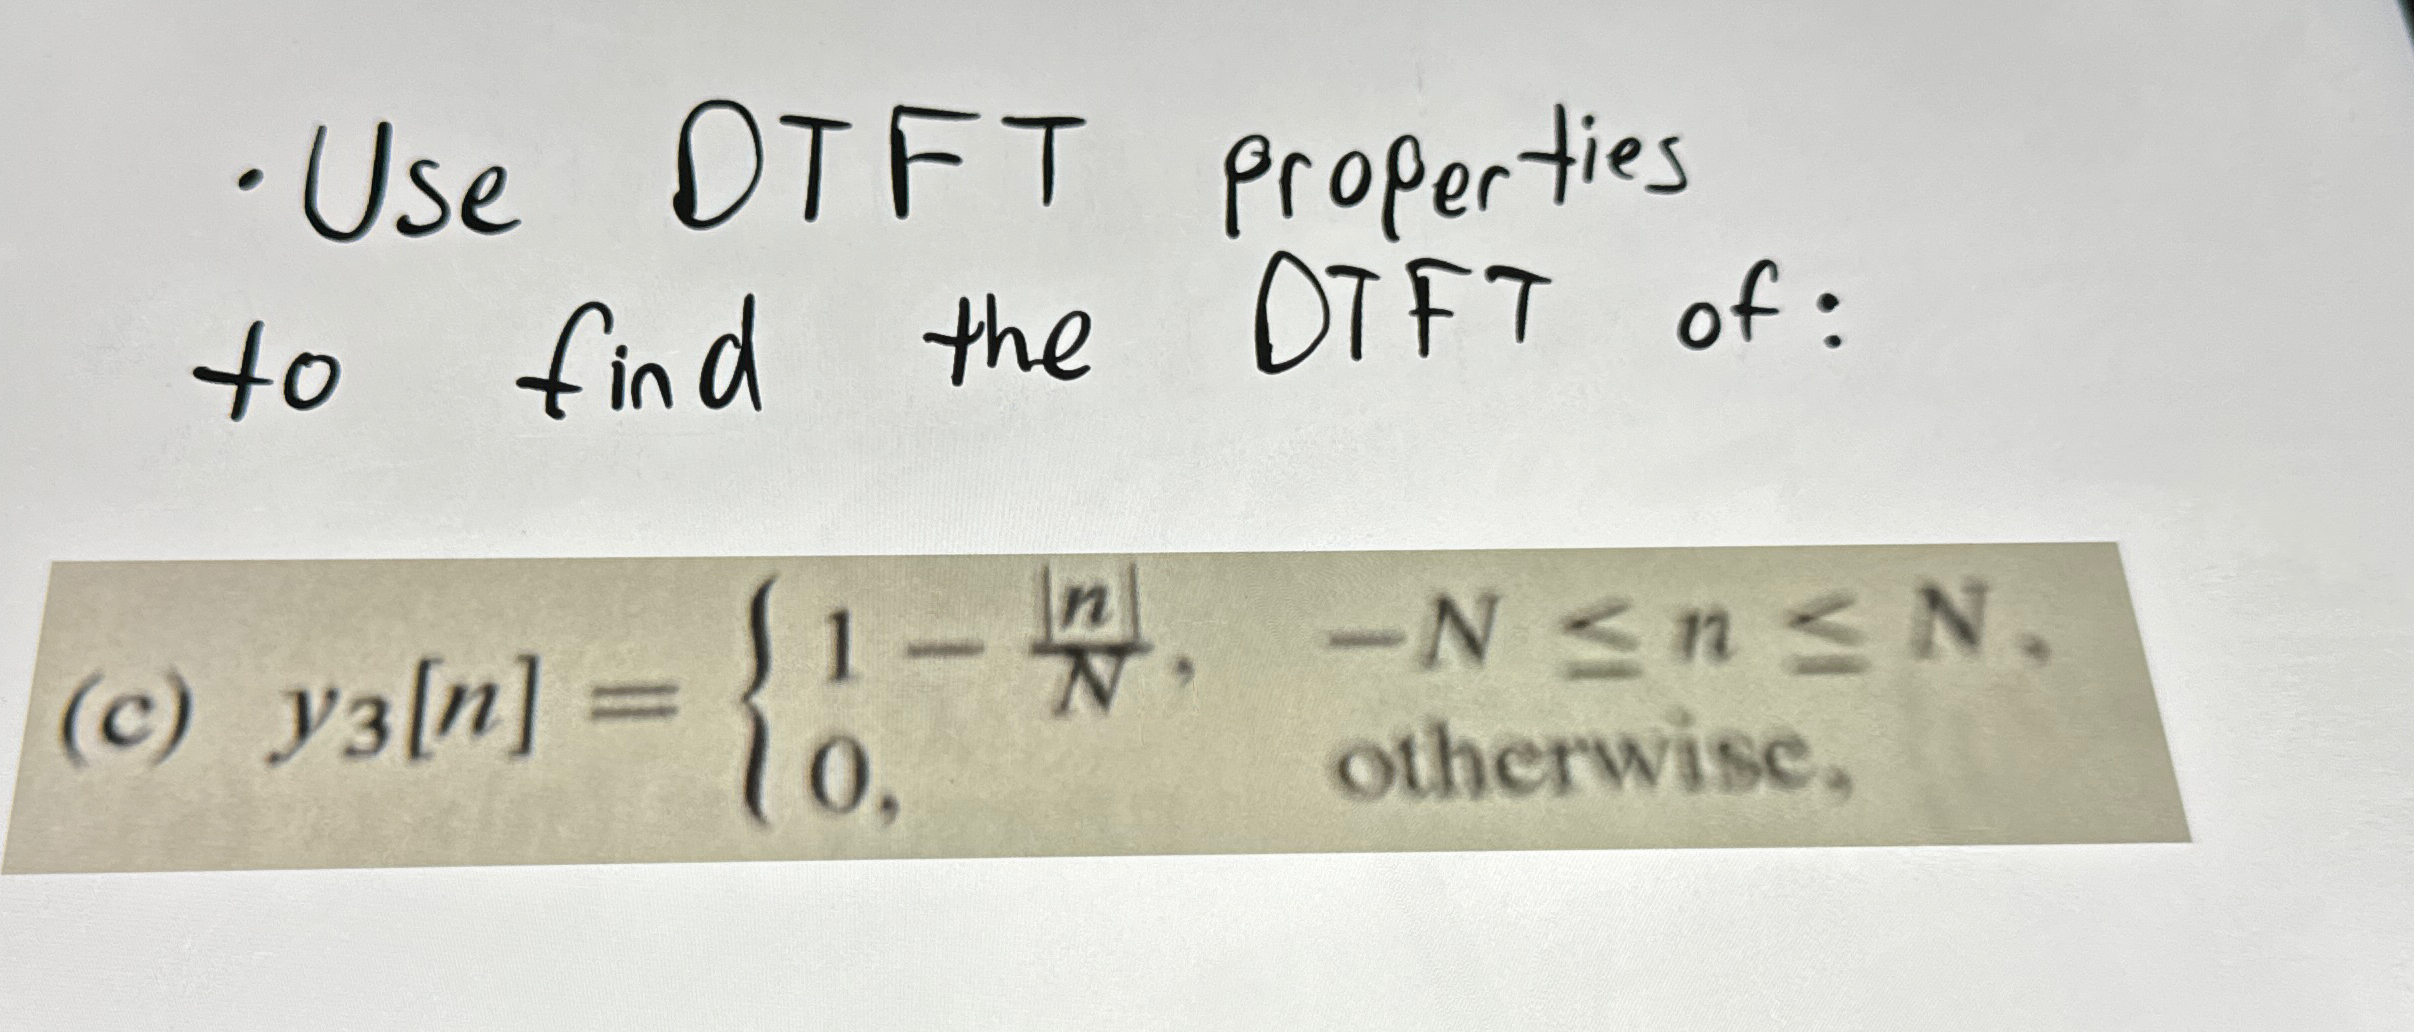 · Use DTFT properties
to find the DTFT of:
(c) y₃[n] = { 1 − |n|/N, −N ≤ n ≤ N,
0, otherwise,